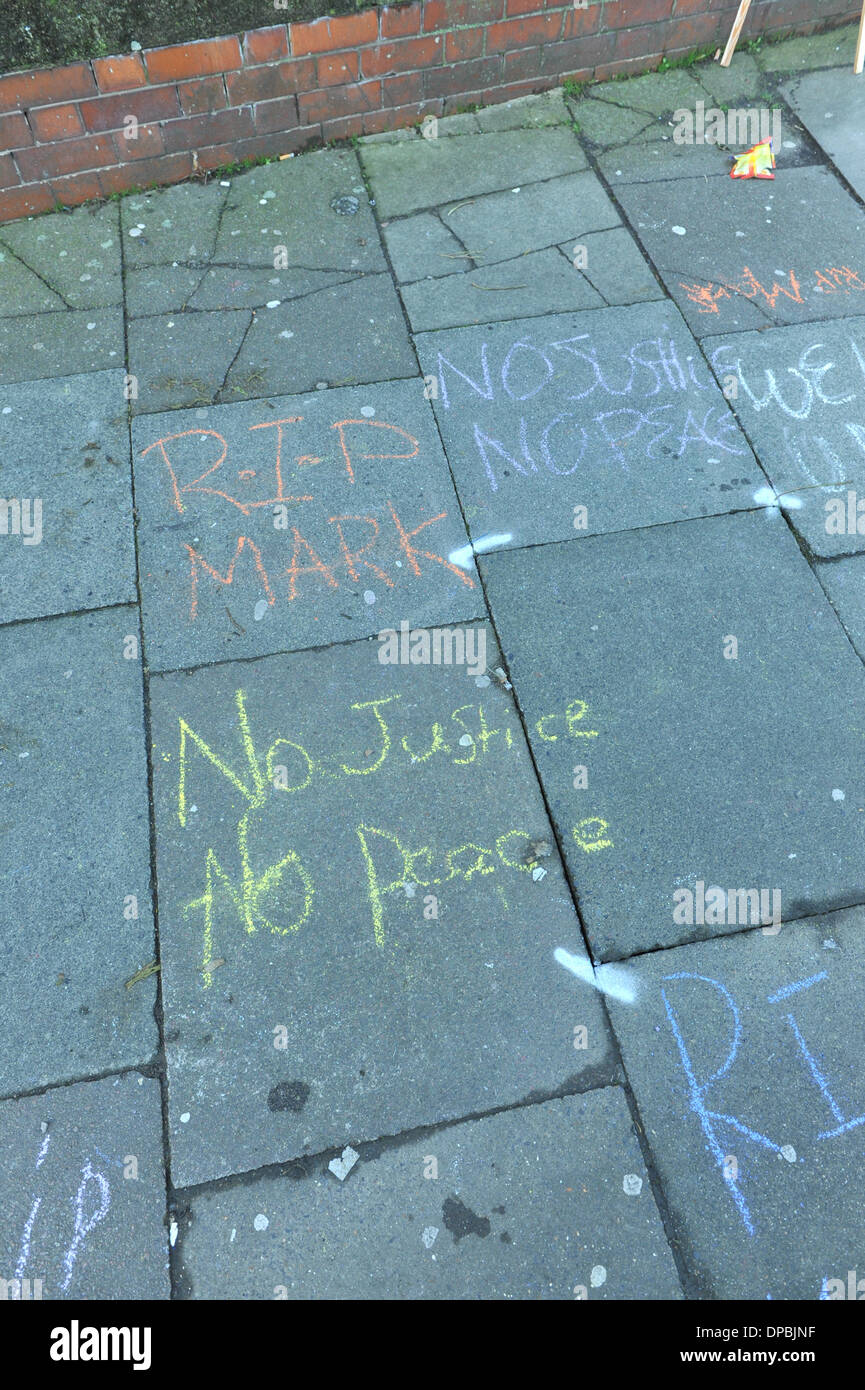 NO JUSTICE
NO PEACE
WE
R.I.P
MARK
No Justice
No peace
RI
IP
alamy
Image ID: DPBJNF
www.alamy.com